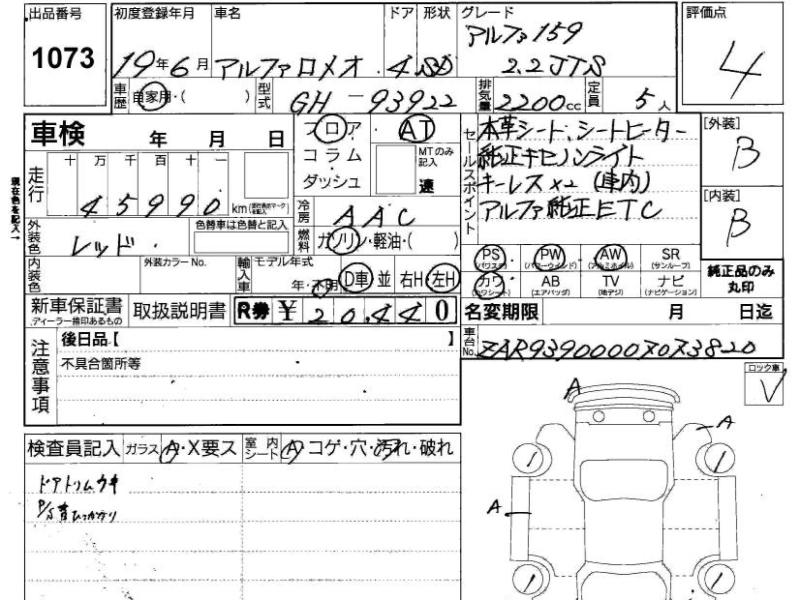 出品番号 初度登録年月 車名 ドア 形状 グレード 評価点
1073 19年6月 アルファロメオ 4 SD アルファ159
2.2JTS 4
車歴 自家用・( ) 型式 GH-93922 排気量 2200cc 定員 5人
車検 年 月 日
フロア・AT
コラム・
ダッシュ
MTのみ記入 速
セールスポイント
本革シート、シートヒーター
純正キセノンライト
キーレス×2 (車内)
アルファ純正ETC
[外装]
B
[内装]
B
現在色を記入→
走行 十万千百十一
45990 km
冷房 AAC
燃料 ガソリン・軽油・( )
外装色 レッド
色替車は色替と記入
内装色 外装カラーNo. 輸入車 モデル年式
年・不明 D車 並 右H・左H
PS (パワステ) PW (パワーウインド) AW (アルミホイル) SR (サンルーフ)
カワ (カワシート) AB (エアバッグ) TV (地デジ) ナビ (ナビゲーション)
純正品のみ丸印
新車保証書 ディーラー捺印あるもの 取扱説明書 R券 ¥20,440
名変期限 月 日迄
車台No. ZAR93900007073820
注意事項
後日品【 】
不具合箇所等
ロック車
V
検査員記入 ガラス A・X要ス 室内シート A・コゲ・穴・汚れ・破れ
ドアトリムウキ
P/S 音ひっかかり
A
A
A